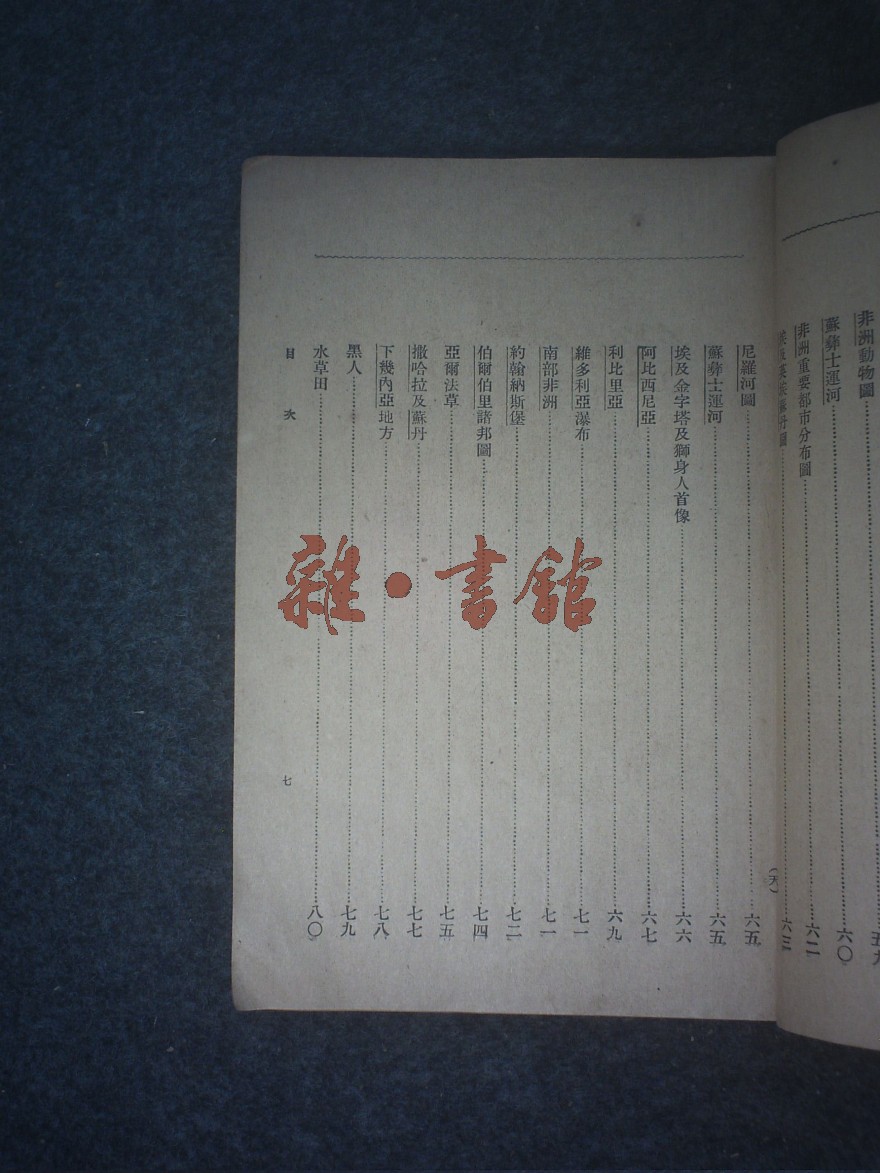 非洲動物圖……五九
蘇彝士運河……六〇
非洲重要都市分布圖……六二
埃及英埃蘇丹圖……六三
(天)
尼羅河圖……六五
蘇彝士運河……六五
埃及金字塔及獅身人首像……六六
阿比西尼亞……六七
利比里亞……六九
維多利亞瀑布……七一
南部非洲……七一
約翰納斯堡……七二
伯爾伯里諸邦圖……七四
亞爾法草……七五
撒哈拉及蘇丹……七七
下幾內亞地方……七八
黑人……七九
水草田……八〇
目次
七
雜·書館